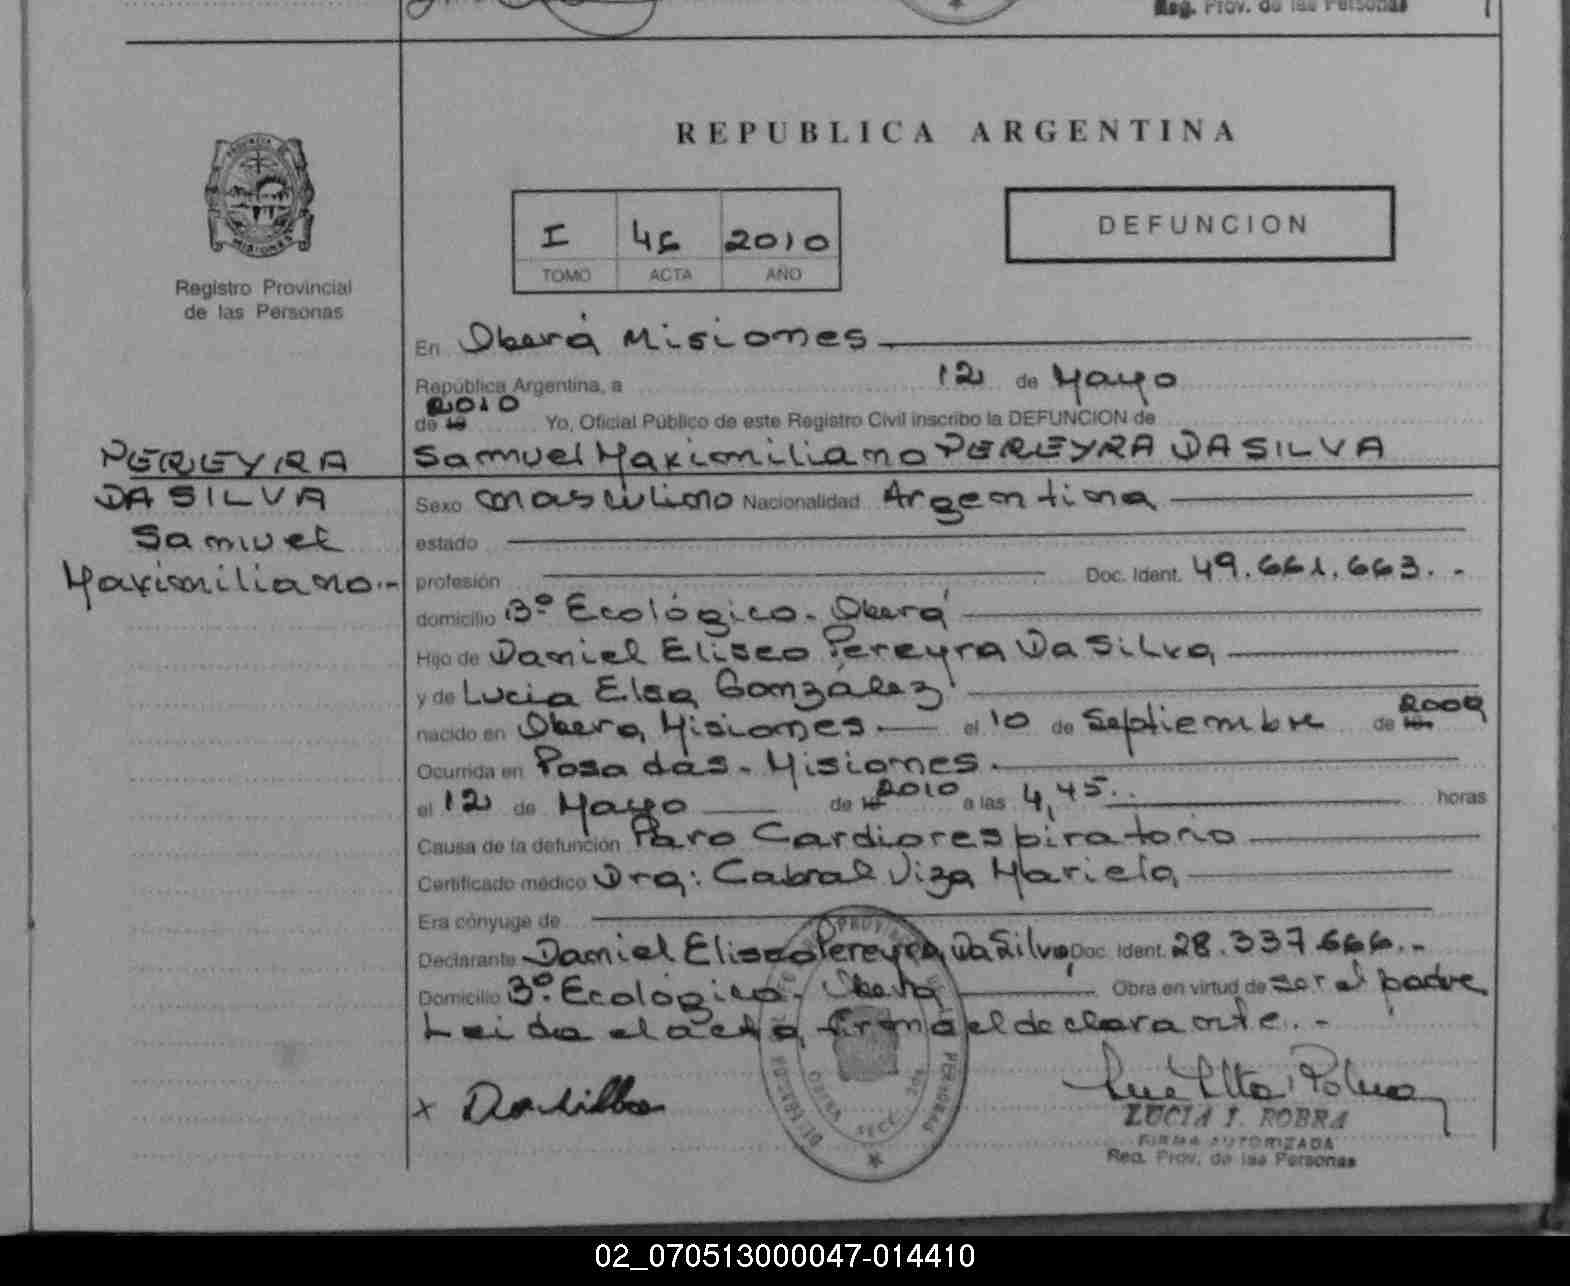 Reg. Prov. de las Personas
REPUBLICA ARGENTINA
DEFUNCION
I 46 2010
TOMO ACTA AÑO
MISIONES
Registro Provincial
de las Personas
En Oberá Misiones
República Argentina, a 12 de Mayo
2010
de 19 Yo, Oficial Público de este Registro Civil inscribo la DEFUNCION de
Samuel Maximiliano PEREYRA DA SILVA
PEREYRA
DA SILVA
Samuel
Maximiliano.-
Sexo masculino Nacionalidad Argentina
estado
profesión Doc. Ident. 49.661.663.-
domicilio Bº Ecológico. Oberá
Hijo de Daniel Eliseo Pereyra Da Silva
y de Lucia Elsa González
nacido en Oberá, Misiones el 10 de Septiembre de 2009
Ocurrida en Posadas. Misiones.
el 12 de Mayo de 19 2010 a las 4,45.. horas
Causa de la defunción Paro Cardiorespiratorio
Certificado médico Dra: Cabral Viza Mariela
Era cónyuge de
Declarante Daniel Eliseo Pereyra Da Silva Doc. Ident. 28.337.666.-
Domicilio Bº. Ecológico. Oberá Obra en virtud de ser el padre
Leida el acta firma el declarante.-
x
LUCIA I. ROBRA
FIRMA AUTORIZADA
Reg. Prov. de las Personas
02_070513000047-014410